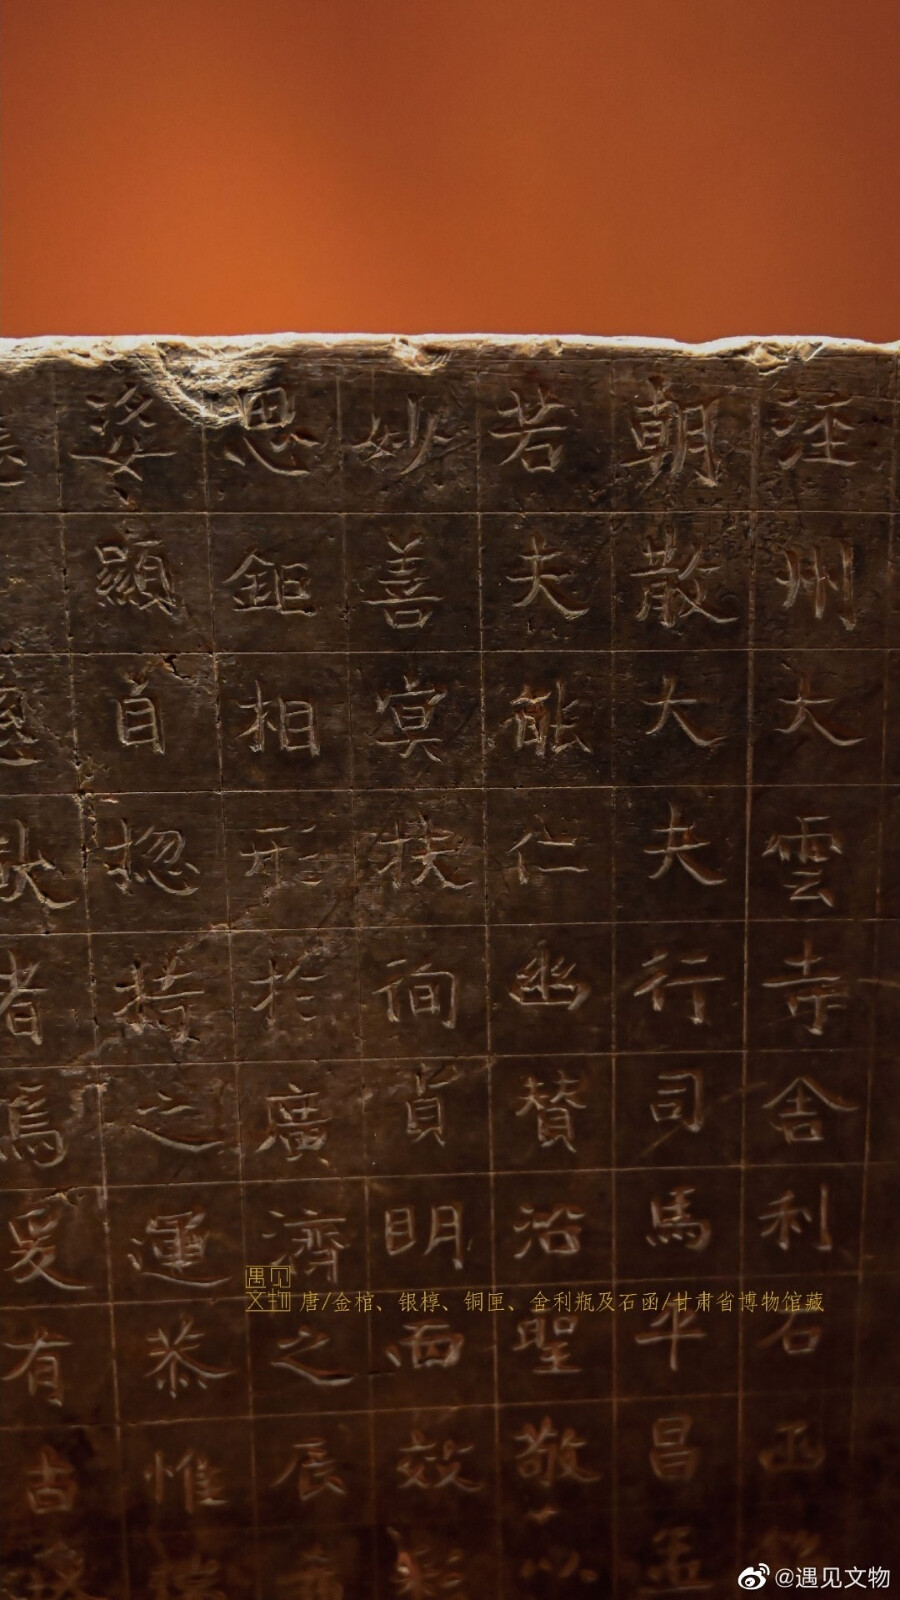 泾州大雲寺舍利石函
朝散大夫行司馬平昌孟
若夫能仁幽贊沿聖敬以
妙善冥扶徇貞明而效彩
思鉅相形於廣濟之辰
姿顯首揔持之運恭惟
者焉爰有古
遇见文物
唐/金棺、银椁、铜匣、舍利瓶及石函/甘肃省博物馆藏
@遇见文物